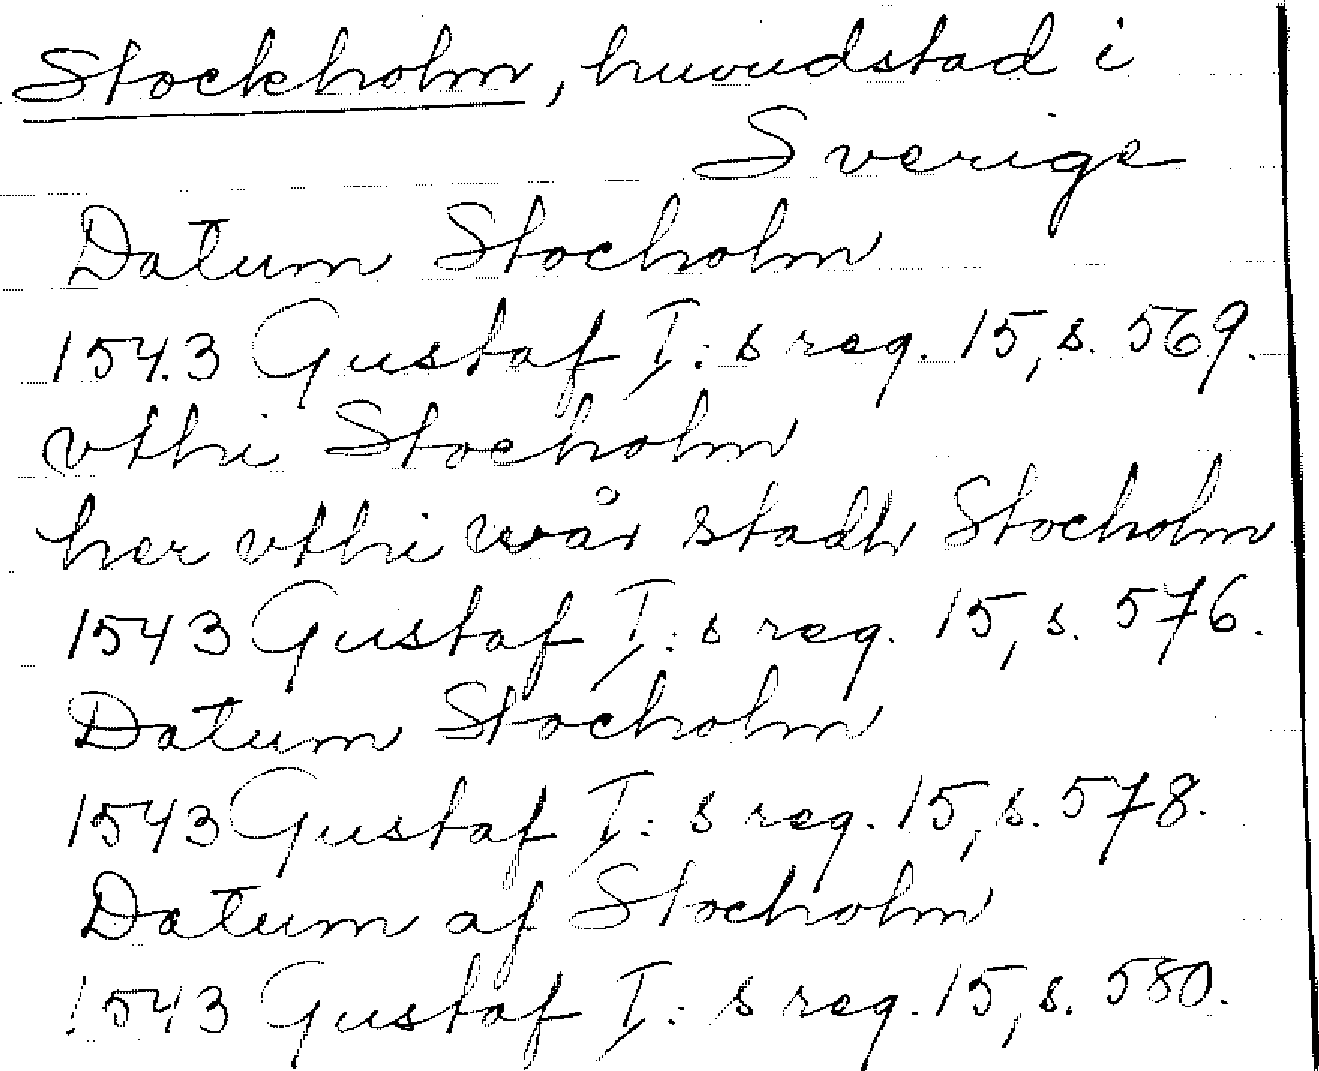 Stockholm, huvudstad i
Sverige
Datum Stocholm
1543 Gustaf I: s reg. 15, s. 569.
vthi Stocholm
her vthi wår stadh Stocholm
1543 Gustaf I: s reg. 15, s. 576.
Datum Stocholm
1543 Gustaf I: s reg. 15, s. 578.
Datum af Stocholm
1543 Gustaf I: s reg. 15, s. 580.